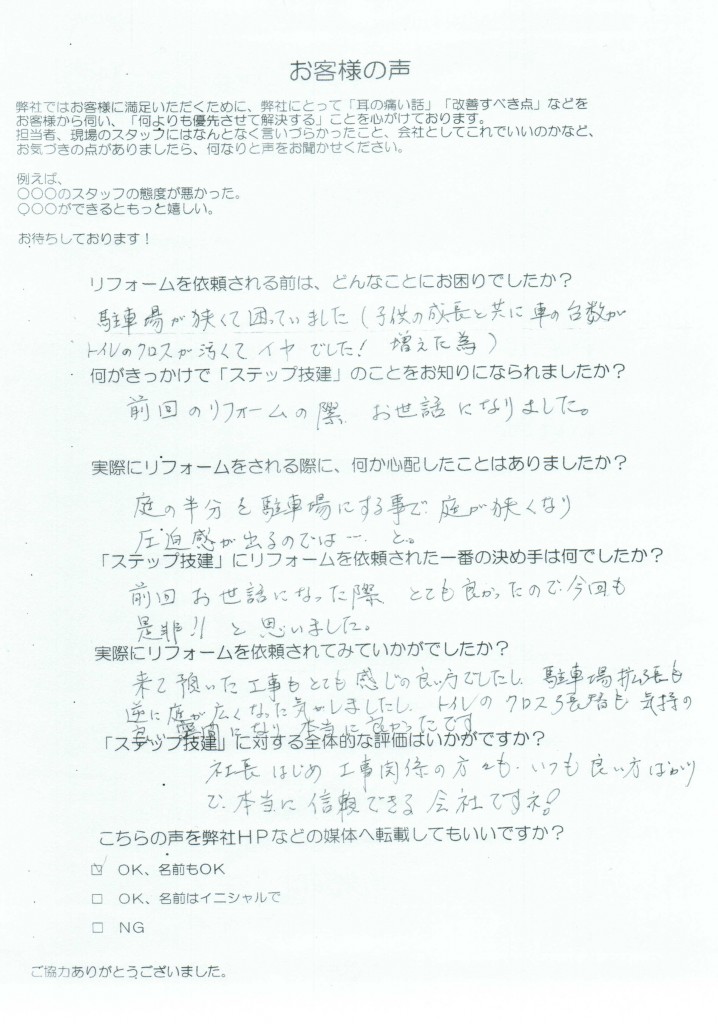 お客様の声
弊社ではお客様に満足いただくために、弊社にとって「耳の痛い話」「改善すべき点」などを
お客様から伺い、「何よりも優先させて解決する」ことを心がけております。
担当者、現場のスタッフにはなんとなく言いづらかったこと、会社としてこれでいいのかなど、
お気づきの点がありましたら、何なりと声をお聞かせください。
例えば、
〇〇〇のスタッフの態度が悪かった。
〇〇〇ができるともっと嬉しい。
お待ちしております！
リフォームを依頼される前は、どんなことにお困りでしたか？
駐車場が狭くて困っていました（子供の成長と共に車の台数が
トイレのクロスが汚くてイヤでした！ 増えた為）
何がきっかけで「ステップ技建」のことをお知りになられましたか？
前回のリフォームの際、お世話になりました。
実際にリフォームをされる際に、何か心配したことはありましたか？
庭の半分を駐車場にする事で庭が狭くなり
圧迫感が出るのでは…。と。
「ステップ技建」にリフォームを依頼された一番の決め手は何でしたか？
前回お世話になった際 とても良かったので今回も
是非!! と思いました。
実際にリフォームを依頼されてみていかがでしたか？
来て頂いた工事もとても感じの良い方でしたし、駐車場拡張も
逆に庭が広くなった気がしましたし、トイレのクロス張替も気持の
良い空間になり本当に良かったです
「ステップ技建」に対する全体的な評価はいかがですか？
社長はじめ工事関係の方々も、いつも良い方ばかり
で本当に信頼できる会社ですネ！
こちらの声を弊社ＨＰなどの媒体へ転載してもいいですか？
☑ OK、名前もOK
□ OK、名前はイニシャルで
□ NG
ご協力ありがとうございました。